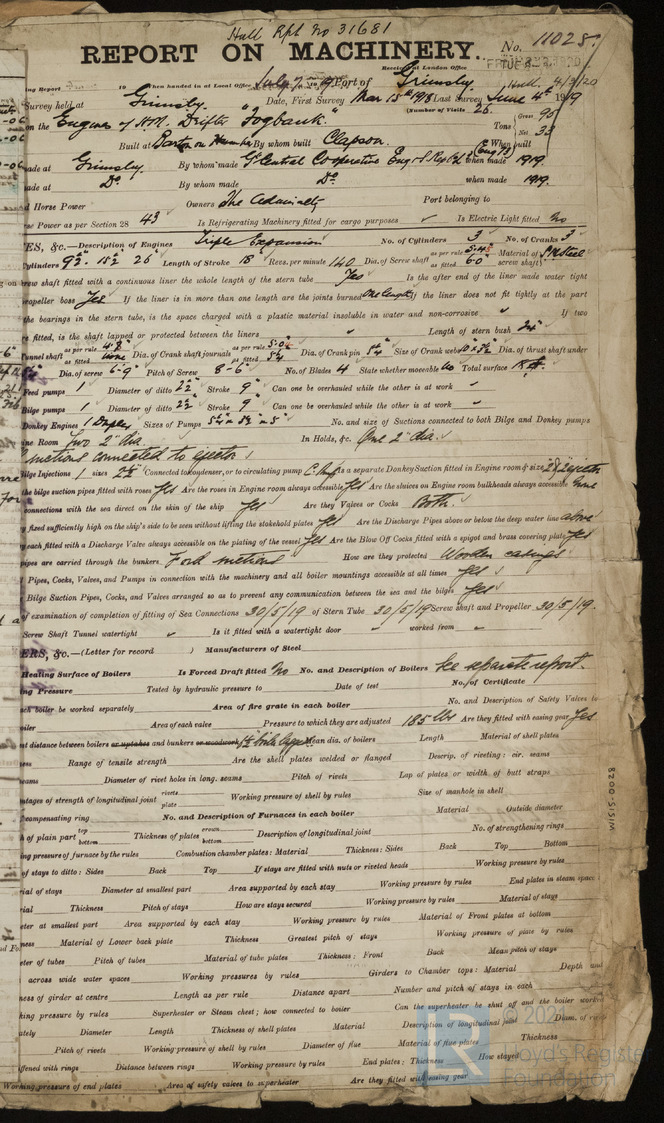 Hull Rpt No 31681
REPORT ON MACHINERY.
No. 11028.
Received at London Office
ing Report 19 When handed in at Local Office July 7 1919 Port of Grimsby Hull 4/3/20
Survey held at Grimsby. Date, First Survey Mar 15th 1918 Last Survey June 4th 1919
(Number of Visits 26
on the Engines of H.M. Drifter "Fogbank." Tons Gross 96 Net 38
Built at Barton on Humber By whom built Clapson. When built
made at Grimsby By whom made Gt Central Cooperative Eng & Rep Co Ld when made 1919.
made at Do By whom made Do. when made 1919.
d Horse Power Owners The Admiralty Port belonging to
rse Power as per Section 28 43 Is Refrigerating Machinery fitted for cargo purposes Is Electric Light fitted No
ES, &c.—Description of Engines Triple Expansion No. of Cylinders 3 No. of Cranks 3
Cylinders 9½" 15½" 26" Length of Stroke 18" Revs. per minute 140 Dia. of Screw shaft as per rule 5.43 as fitted 6.0" Material of screw shaft Steel
screw shaft fitted with a continuous liner the whole length of the stern tube Yes Is the after end of the liner made water tight
propeller boss Yes If the liner is in more than one length are the joints burned One length If the liner does not fit tightly at the part
the bearings in the stern tube, is the space charged with a plastic material insoluble in water and non-corrosive If two
re fitted, is the shaft lapped or protected between the liners Length of stern bush 24"
Tunnel shaft as per rule 4.8" as fitted none Dia. of Crank shaft journals as per rule as fitted 5¼ Dia. of Crank pin 5¼ Size of Crank webs Dia. of thrust shaft under
Dia. of screw 6-9" Pitch of Screw 8-6" No. of Blades 4 State whether moveable No Total surface
Feed pumps 1 Diameter of ditto 2½" Stroke 9" Can one be overhauled while the other is at work
Bilge pumps 1 Diameter of ditto 2½" Stroke 9" Can one be overhauled while the other is at work
Donkey Engines 1 Duplex Sizes of Pumps No. and size of Suctions connected to both Bilge and Donkey pumps
ine Room Two 2" dia. In Holds, &c. One 2" dia.
suctions connected to ejector
Bilge Injections 1 sizes 2½" Connected to condenser, or to circulating pump C. Pump Is a separate Donkey Suction fitted in Engine room & size
the bilge suction pipes fitted with roses Yes Are the roses in Engine room always accessible Yes Are the sluices on Engine room bulkheads always accessible none
connections with the sea direct on the skin of the ship Yes Are they Valves or Cocks Both.
y fixed sufficiently high on the ship's side to be seen without lifting the stokehold plates Yes Are the Discharge Pipes above or below the deep water line above
y each fitted with a Discharge Valve always accessible on the plating of the vessel Yes Are the Blow Off Cocks fitted with a spigot and brass covering plate Yes
pipes are carried through the bunkers Ford suctions How are they protected Wooden casings
Pipes, Cocks, Valves, and Pumps in connection with the machinery and all boiler mountings accessible at all times Yes
Bilge Suction Pipes, Cocks, and Valves arranged so as to prevent any communication between the sea and the bilges Yes
of examination of completion of fitting of Sea Connections 30/5/19 of Stern Tube 30/5/19 Screw shaft and Propeller 30/5/19.
Screw Shaft Tunnel watertight Is it fitted with a watertight door worked from
ERS, &c.—(Letter for record ) Manufacturers of Steel
Heating Surface of Boilers Is Forced Draft fitted No No. and Description of Boilers See separate report.
ing Pressure Tested by hydraulic pressure to Date of test No. of Certificate
ach boiler be worked separately Area of fire grate in each boiler No. and Description of Safety Valves to
boiler Area of each valve Pressure to which they are adjusted 185 lbs Are they fitted with easing gear Yes
st distance between boilers or uptakes and bunkers or woodwork Mean dia. of boilers Length Material of shell plates
ness Range of tensile strength Are the shell plates welded or flanged Descrip. of riveting: cir. seams
seams Diameter of rivet holes in long. seams Pitch of rivets Lap of plates or width of butt straps
ntages of strength of longitudinal joint rivets plate Working pressure of shell by rules Size of manhole in shell
compensating ring No. and Description of Furnaces in each boiler Material Outside diameter
h of plain part top bottom Thickness of plates crown bottom Description of longitudinal joint No. of strengthening rings
ing pressure of furnace by the rules Combustion chamber plates: Material Thickness: Sides Back Top Bottom
of stays to ditto: Sides Back Top If stays are fitted with nuts or riveted heads Working pressure by rules
ial of stays Diameter at smallest part Area supported by each stay Working pressure by rules End plates in steam space
rial Thickness Pitch of stays How are stays secured Working pressure by rules Material of stays
eter at smallest part Area supported by each stay Working pressure by rules Material of Front plates at bottom
ness Material of Lower back plate Thickness Greatest pitch of stays Working pressure of plate by rules
eter of tubes Pitch of tubes Material of tube plates Thickness: Front Back Mean pitch of stays
across wide water spaces Working pressures by rules Girders to Chamber tops: Material Depth and
ness of girder at centre Length as per rule Distance apart Number and pitch of stays in each
king pressure by rules Superheater or Steam chest; how connected to boiler Can the superheater be shut off and the boiler worked
ately Diameter Length Thickness of shell plates Material Description of longitudinal joint Diam. of rivet
Pitch of rivets Working pressure of shell by rules Diameter of flue Material of flue plates Thickness
ffened with rings Distance between rings Working pressure by rules End plates: Thickness How stayed
Working pressure of end plates Area of safety valves to superheater Are they fitted with easing gear
Lloyd's Register
Foundation